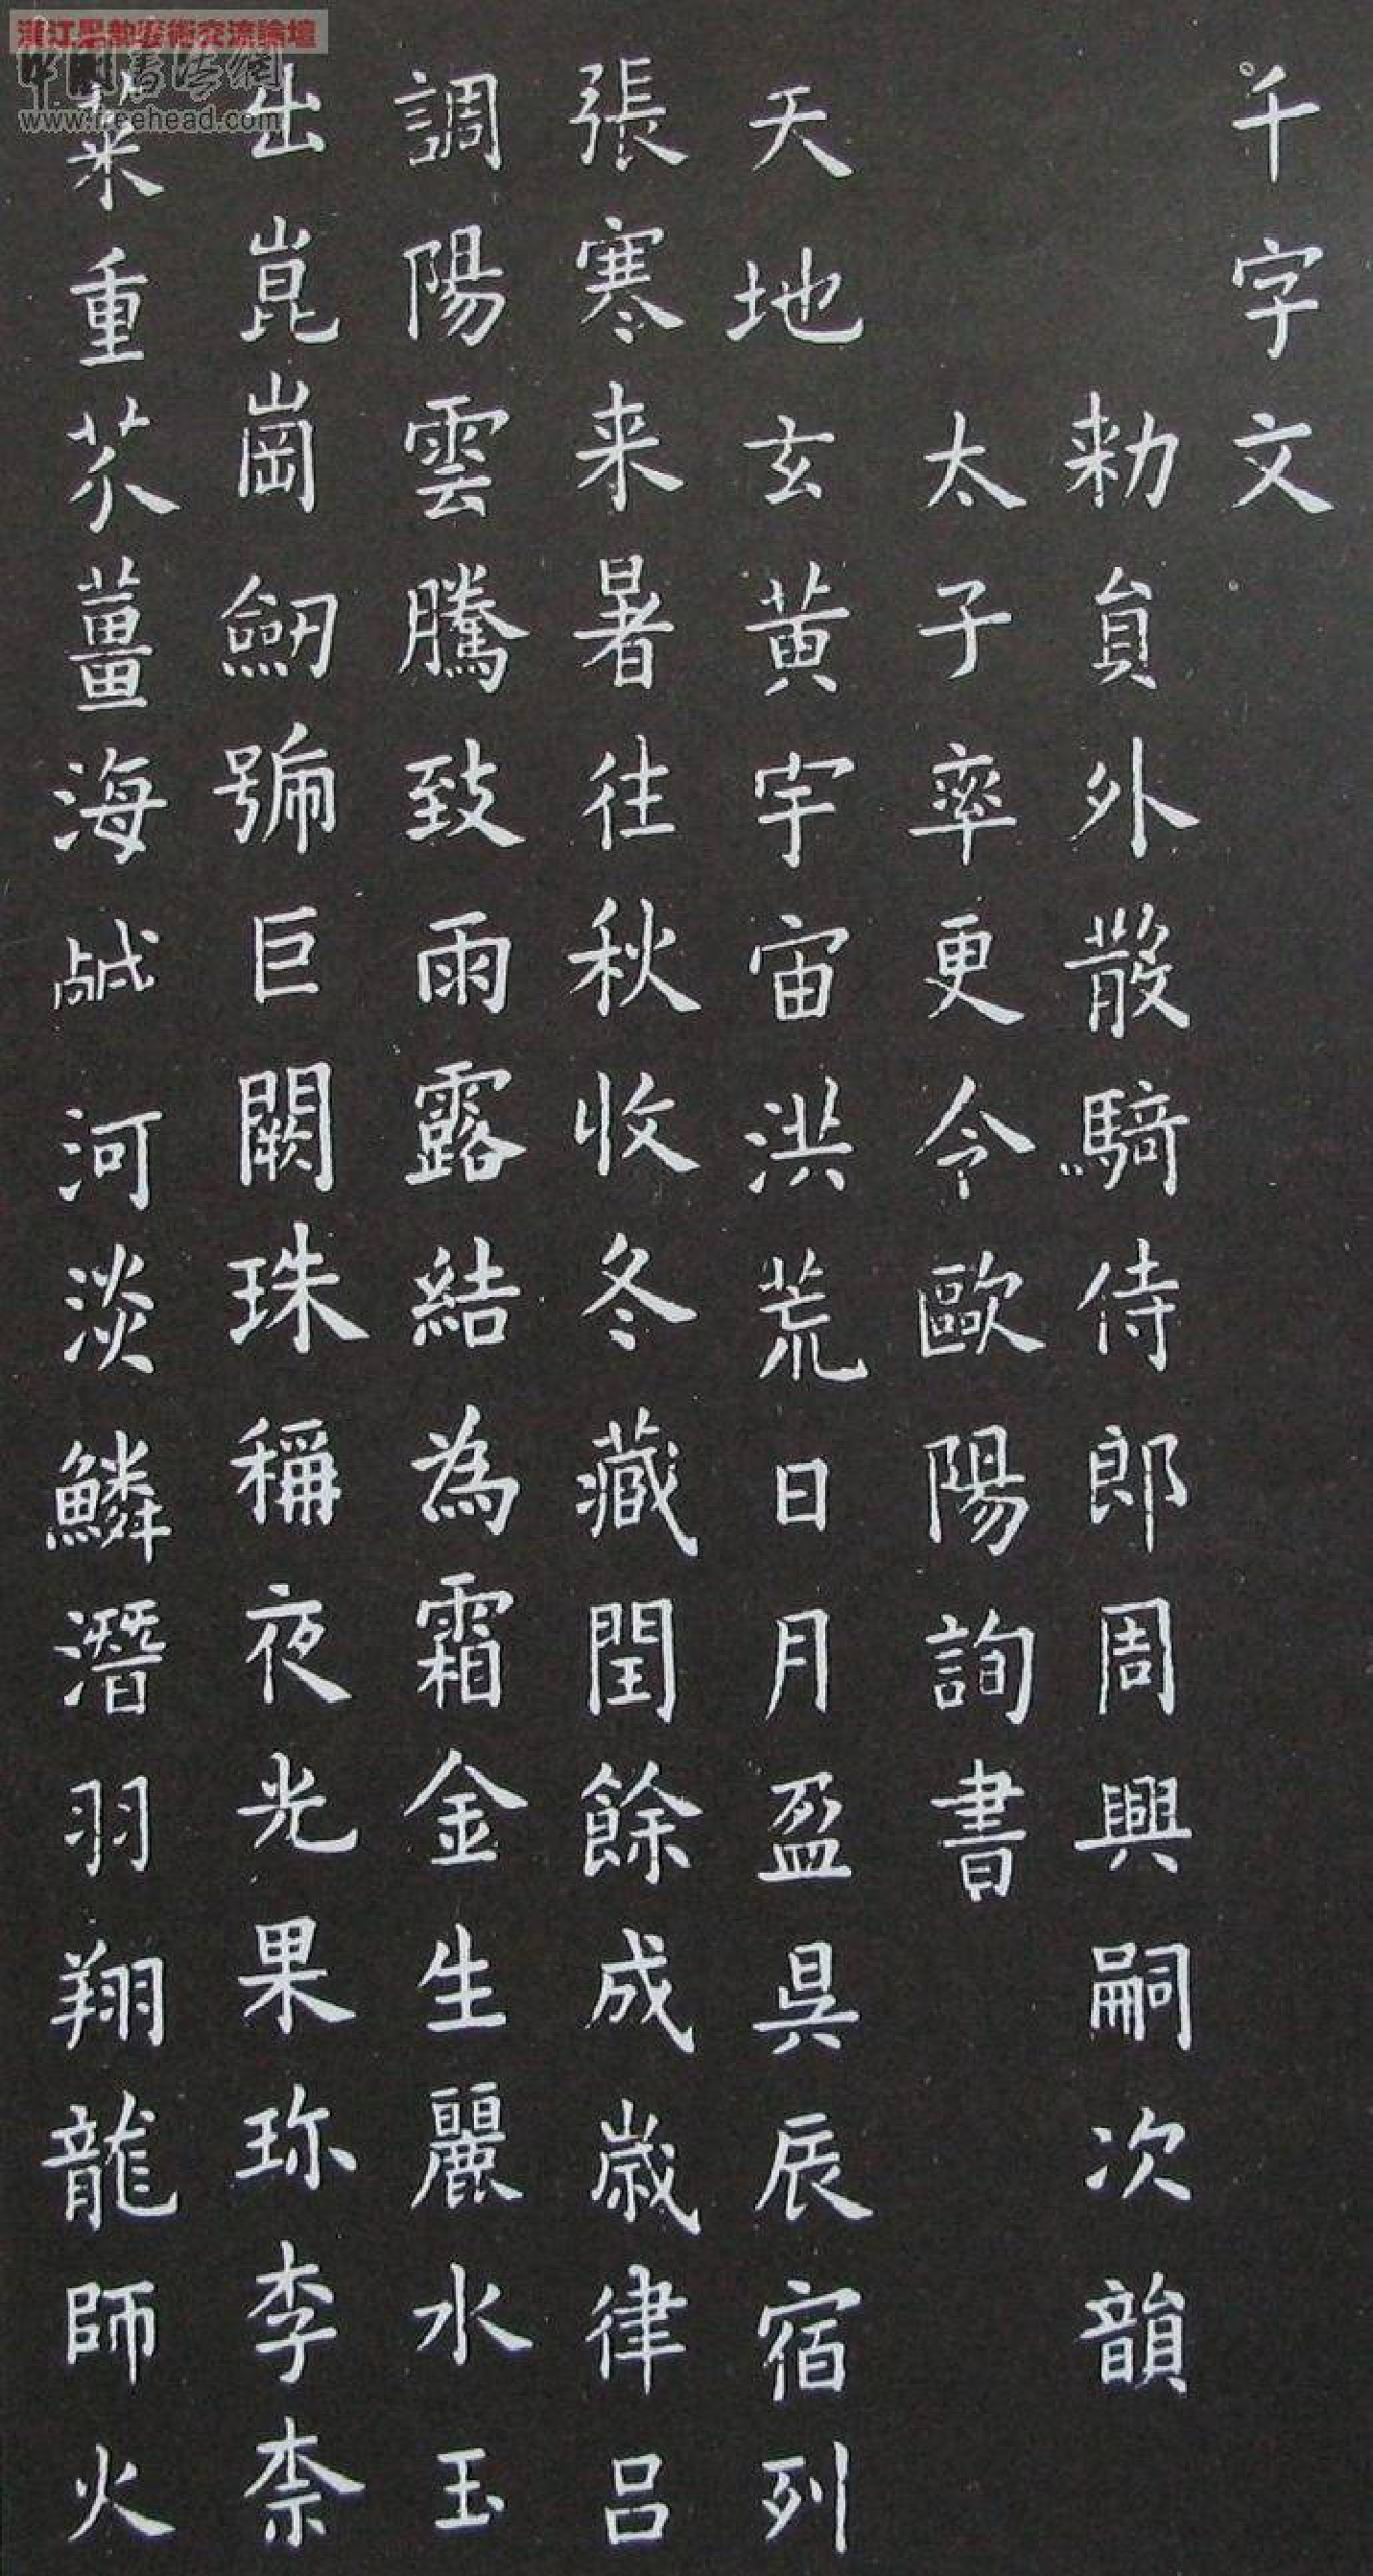 千字文
勑貟外散騎侍郎周興嗣次韻
太子率更令歐陽詢書
天地玄黃宇宙洪荒日月盈昃辰宿列
張寒来暑往秋收冬藏閏餘成歲律呂
調陽雲騰致雨露結為霜金生麗水玉
出崑崗劒號巨闕珠稱夜光果珎李柰
菜重芥薑海鹹河淡鱗潛羽翔龍師火
中國書法網
www.freehead.com